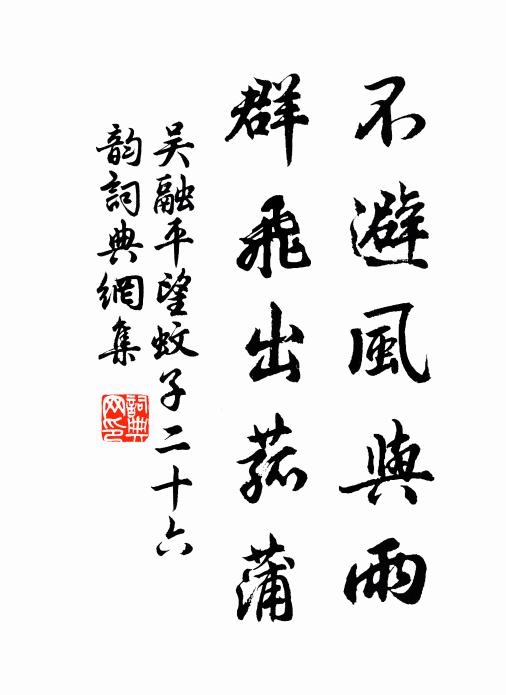 不避風與雨
群飛出菰蒲
吴融平望蚊子二十六
韵詞典網集
詞典网印